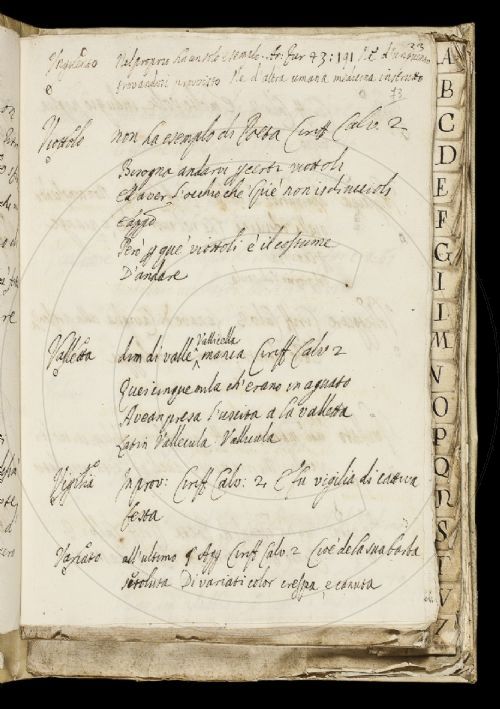 33
Nel proprio ha un solo esempio. Ar: Fur 43: 191
trovandosi provisto d'altra umana medicina instrutto
73
Viottolo non ha esempio di Poeta Ciriff Calv. 2
Bisogna andarvi p certi viottoli
Et aver l'occhio che quie non isdruccioli
e app͂o
Però p que' viottoli è il costume
D'andare
Valletta dim di valle Vallicella manca Ciriff Calv 2
Quei cinque mila ch'erano in aguato
Avean presa l'uscita a la valletta
Latin Vallecula Vallicula
Vigilia Improv: Ciriff Calv: 2. E fu vigilia di cattiva
festa
Variato all'ultimo § Agg Ciriff Calv. 2 Cioè de la sua barba
Di variati color crespa, e canuta
A
B
C
D
E
F
G
I
L
M
N
O
P
Q
R
S
T
V
Z